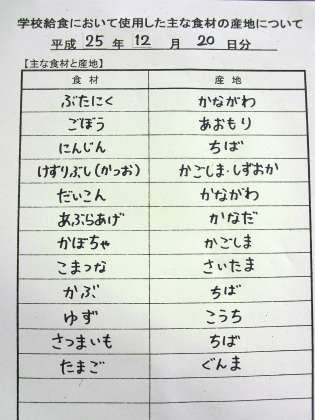 学校給食において使用した主な食材の産地について
平成 25 年 12 月 20 日分
【主な食材と産地】
食材 産地
ぶたにく かながわ
ごぼう あおもり
にんじん ちば
けずりぶし(かつお) かごしま・しずおか
だいこん かながわ
あぶらあげ かなだ
かぼちゃ かごしま
こまつな さいたま
かぶ ちば
ゆず こうち
さつまいも ちば
たまご ぐんま